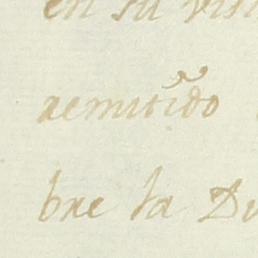 en su vis
remitido
bre la Du